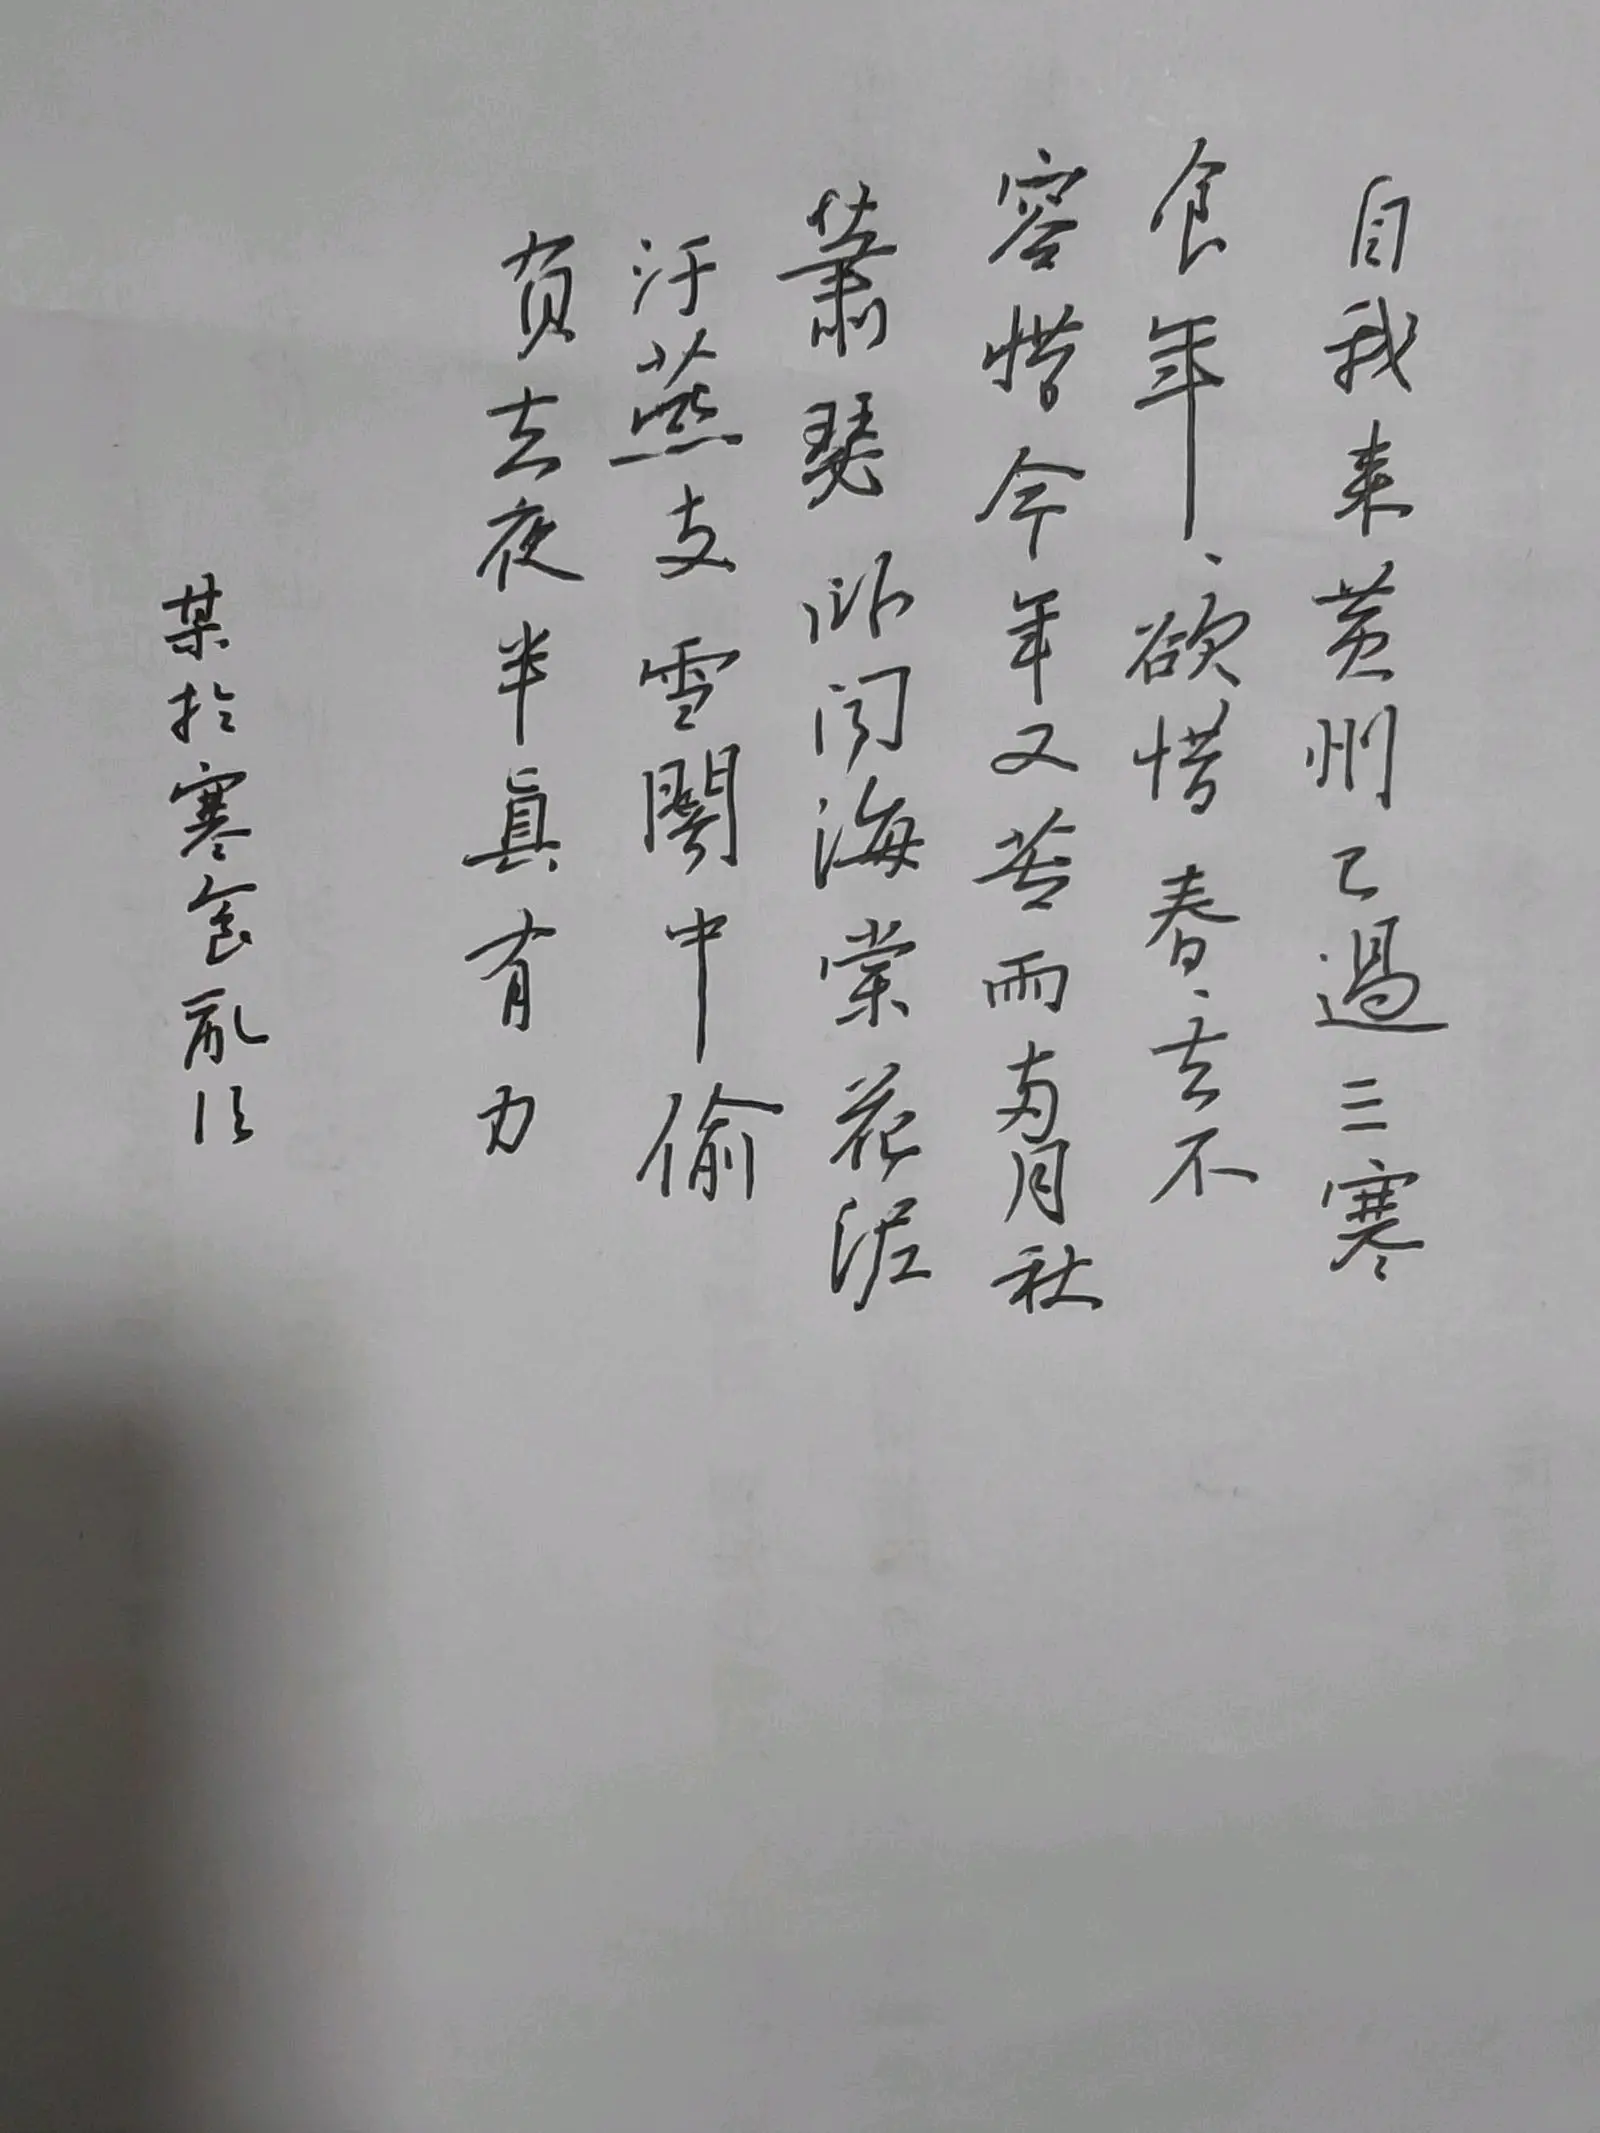 自我来黄州已過三寒
食年、欲惜春、去不
容惜今年又苦雨两月秋
蕭瑟卧闻海棠花泥
汙燕支雪闇中偷
負去夜半真有力
某於寒食乱